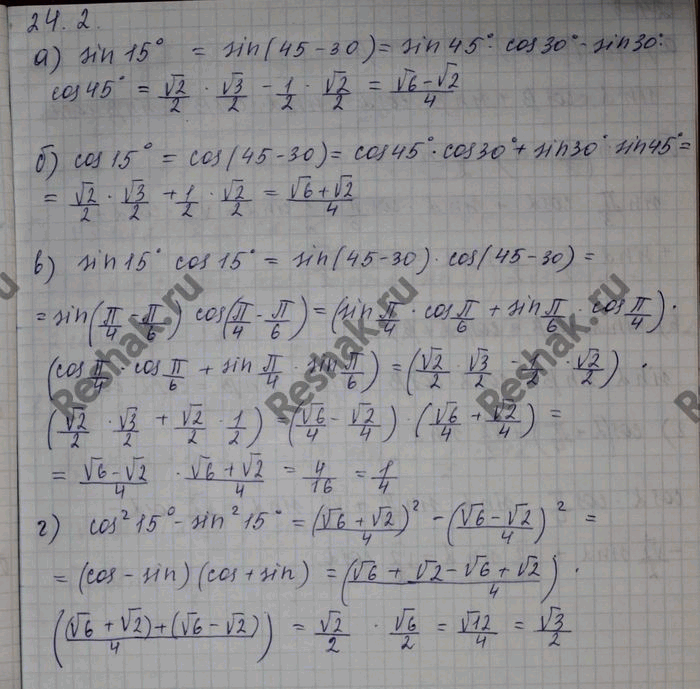 24.2.
а) sin 15° = sin(45-30) = sin 45° · cos 30° - sin 30° ·
cos 45° = √2/2 · √3/2 - 1/2 · √2/2 = (√6-√2)/4
б) cos 15° = cos(45-30) = cos 45° · cos 30° + sin 30° · sin 45° =
= √2/2 · √3/2 + 1/2 · √2/2 = (√6+√2)/4
в) sin 15° cos 15° = sin(45-30) · cos(45-30) =
= sin(π/4 - π/6) cos(π/4 - π/6) = (sin π/4 · cos π/6 + sin π/6 · cos π/4) ·
(cos π/4 · cos π/6 + sin π/4 · sin π/6) = (√2/2 · √3/2 - 1/2 · √2/2) ·
(√2/2 · √3/2 + √2/2 · 1/2) = (√6/4 - √2/4) · (√6/4 + √2/4) =
= (√6-√2)/4 · (√6+√2)/4 = 4/16 = 1/4
г) cos² 15° - sin² 15° = ((√6+√2)/4)² - ((√6-√2)/4)² =
= (cos - sin)(cos + sin) = ((√6 + √2 - √6 + √2)/4) ·
(((√6 + √2) + (√6 - √2))/4) = √2/2 · √6/2 = √12/4 = √3/2
Reshak.ru
Reshak.ru